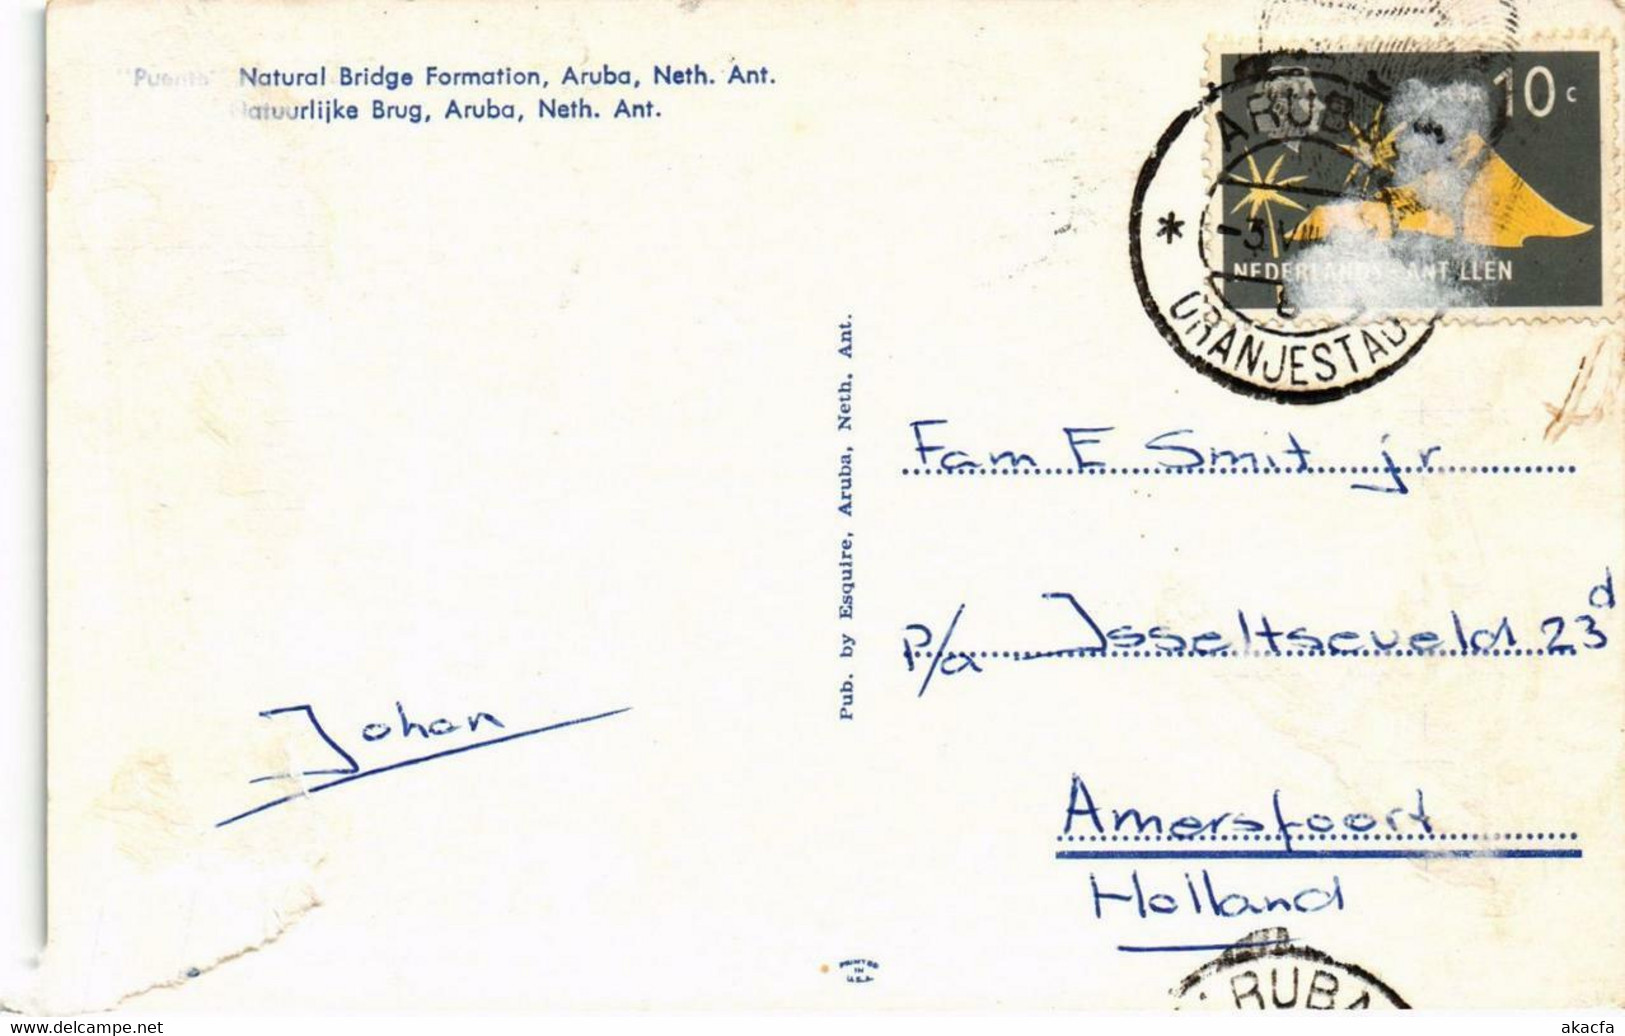 "Puente" Natural Bridge Formation, Aruba, Neth. Ant.
Natuurlijke Brug, Aruba, Neth. Ant.
10 c
NEDERLANDSE ANTILLEN
ARUBA
ORANJESTAD
Pub. by Esquire, Aruba, Neth. Ant.
Fam E Smit jr
p/a IJsseltseveld 23d
Amersfoort
Holland
Johan
PRINTED
IN
U.S.A.
ARUBA
akacfa